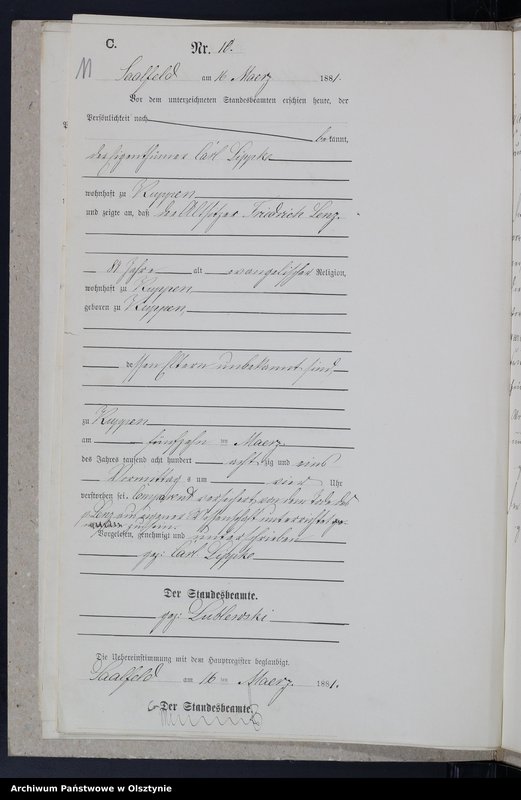 C.
Nr. 18.
11
Saalfeld am 16 Maerz 1881.
Vor dem unterzeichneten Standesbeamten erschien heute, der
Persönlichkeit nach
bekannt,
der Eigenthümer Carl Lippke
wohnhaft zu Kuppen
und zeigte an, daß der Altsitzer Friedrich Lenz
81 Jahre alt evangelischer Religion,
wohnhaft zu Kuppen
geboren zu Kuppen,
dessen Eltern unbekannt sind,
zu Kuppen
am fünfzehn ten Maerz
des Jahres tausend acht hundert achtzig und eins
Vormittags um vier Uhr
verstorben sei. Comparent versichert von dem Tode des
p. Lenz aus eigener Wissenschaft unterrichtet
zu sein.
Vorgelesen, genehmigt und unterschrieben
gez: Carl Lippke
Der Standesbeamte.
gez: Lublewski
Die Uebereinstimmung mit dem Hauptregister beglaubigt.
Saalfeld am 16 ten Maerz 1881.
Der Standesbeamte.
Archiwum Państwowe w Olsztynie